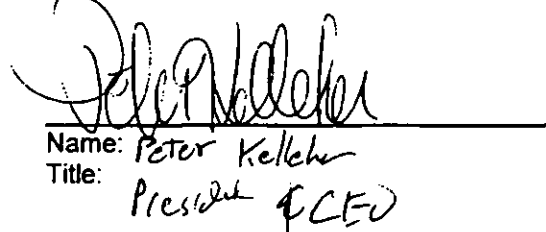 Peter Kelleher
Name: Peter Kelleher
Title:
President & CEO